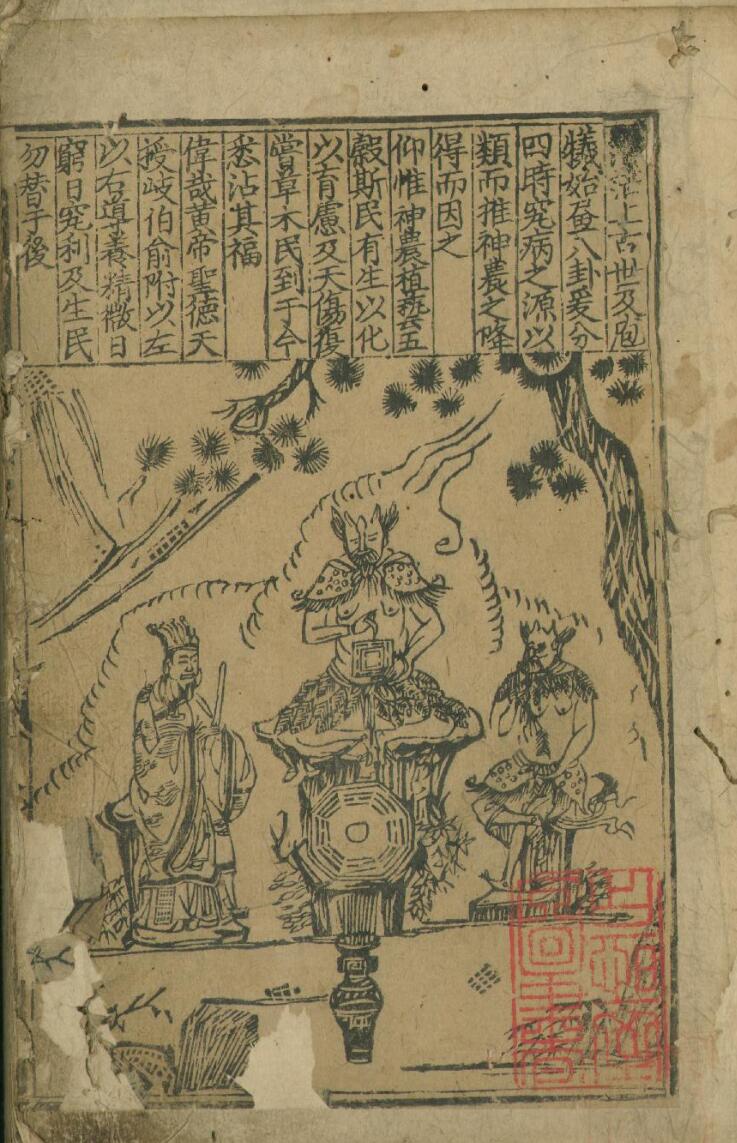 茫上古世及庖
犧始畫八卦爰分
四時究病之源以
類而推神農之降
得而因之
仰惟神農植藝五
穀斯民有生以化
以育慮及夭傷復
嘗草木民到于今
悉沾其福
偉哉黃帝聖德天
授岐伯俞附以左
以右導養精微日
窮日究利及生民
勿替于後